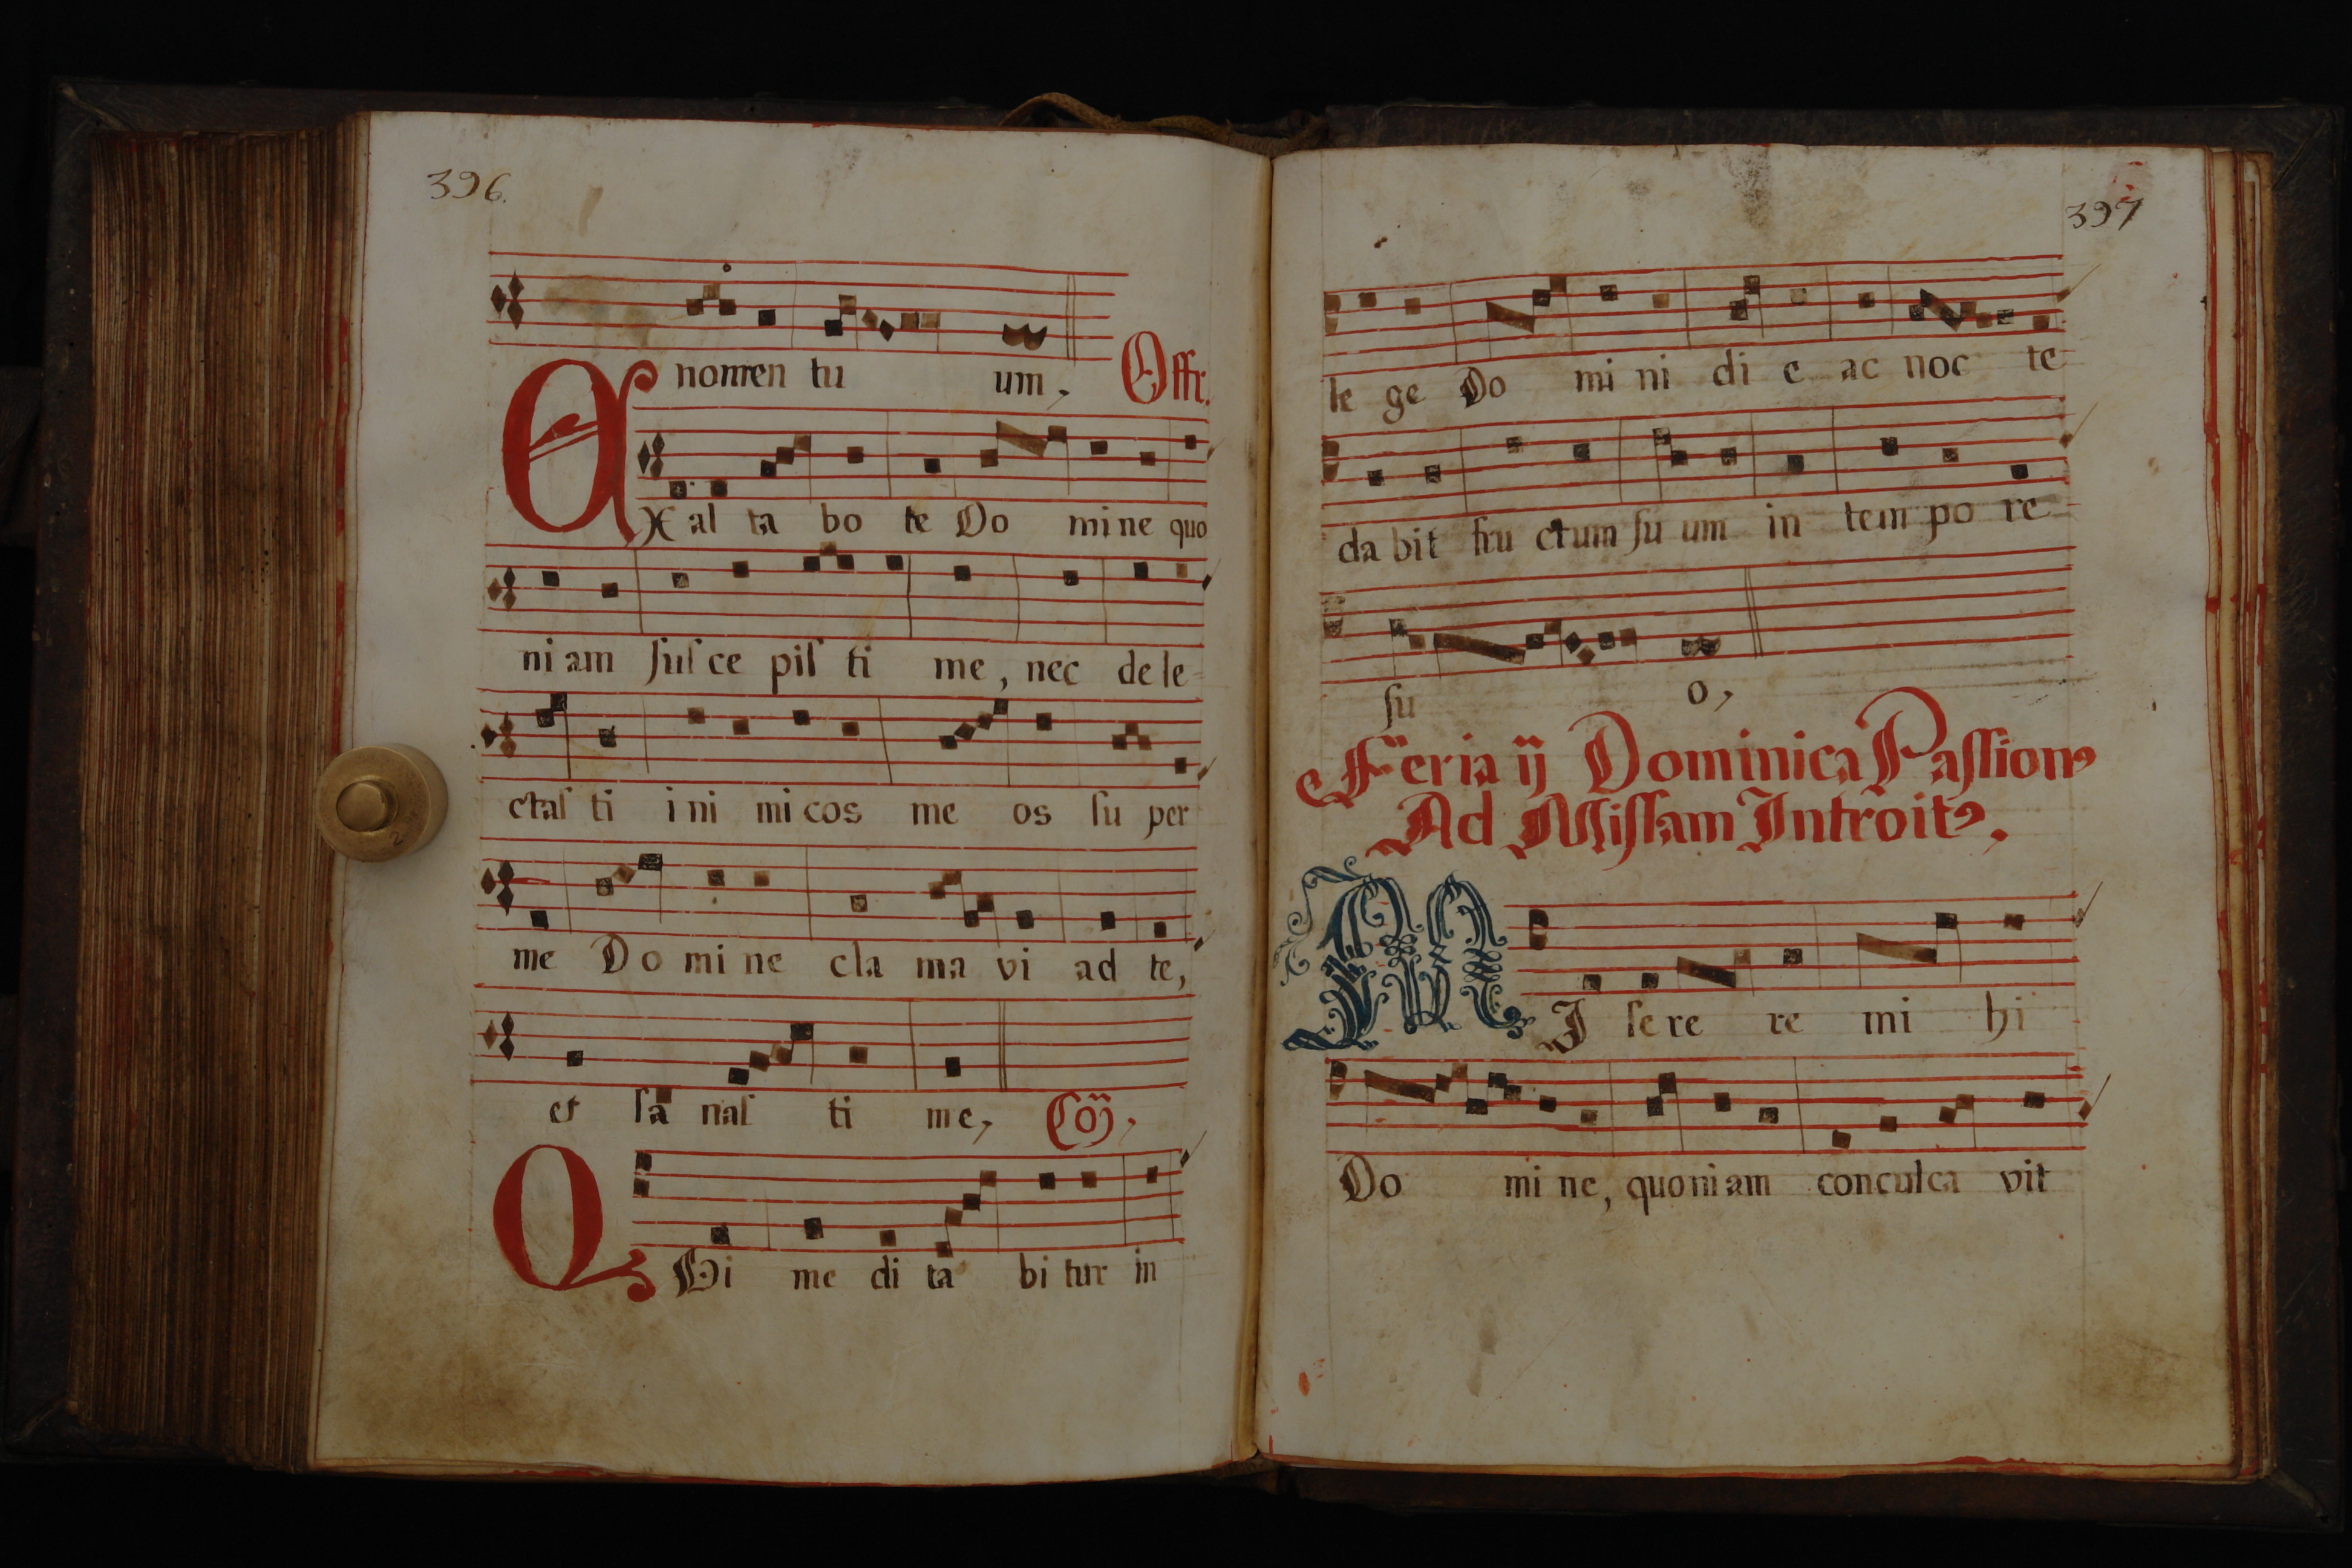 396.
nomen tu um, Offr.
EX al ta bo te Do mi ne quo
ni am ſuſ ce piſ ti me, nec de le-
ctaſ ti i ni mi cos me os ſu per
me Do mi ne cla ma vi ad te,
et ſa naſ ti me, Cõ,
QUi me di ta bi tur in
397
le ge Do mi ni di e ac noc te
da bit fru ctum ſu um in tem po re
ſu o,
Feria ij Dominica Paſſionꝰ
Ad Miſſam Introitꝰ,
MI ſe re re mi hi
Do mi ne, quoniam conculca vit